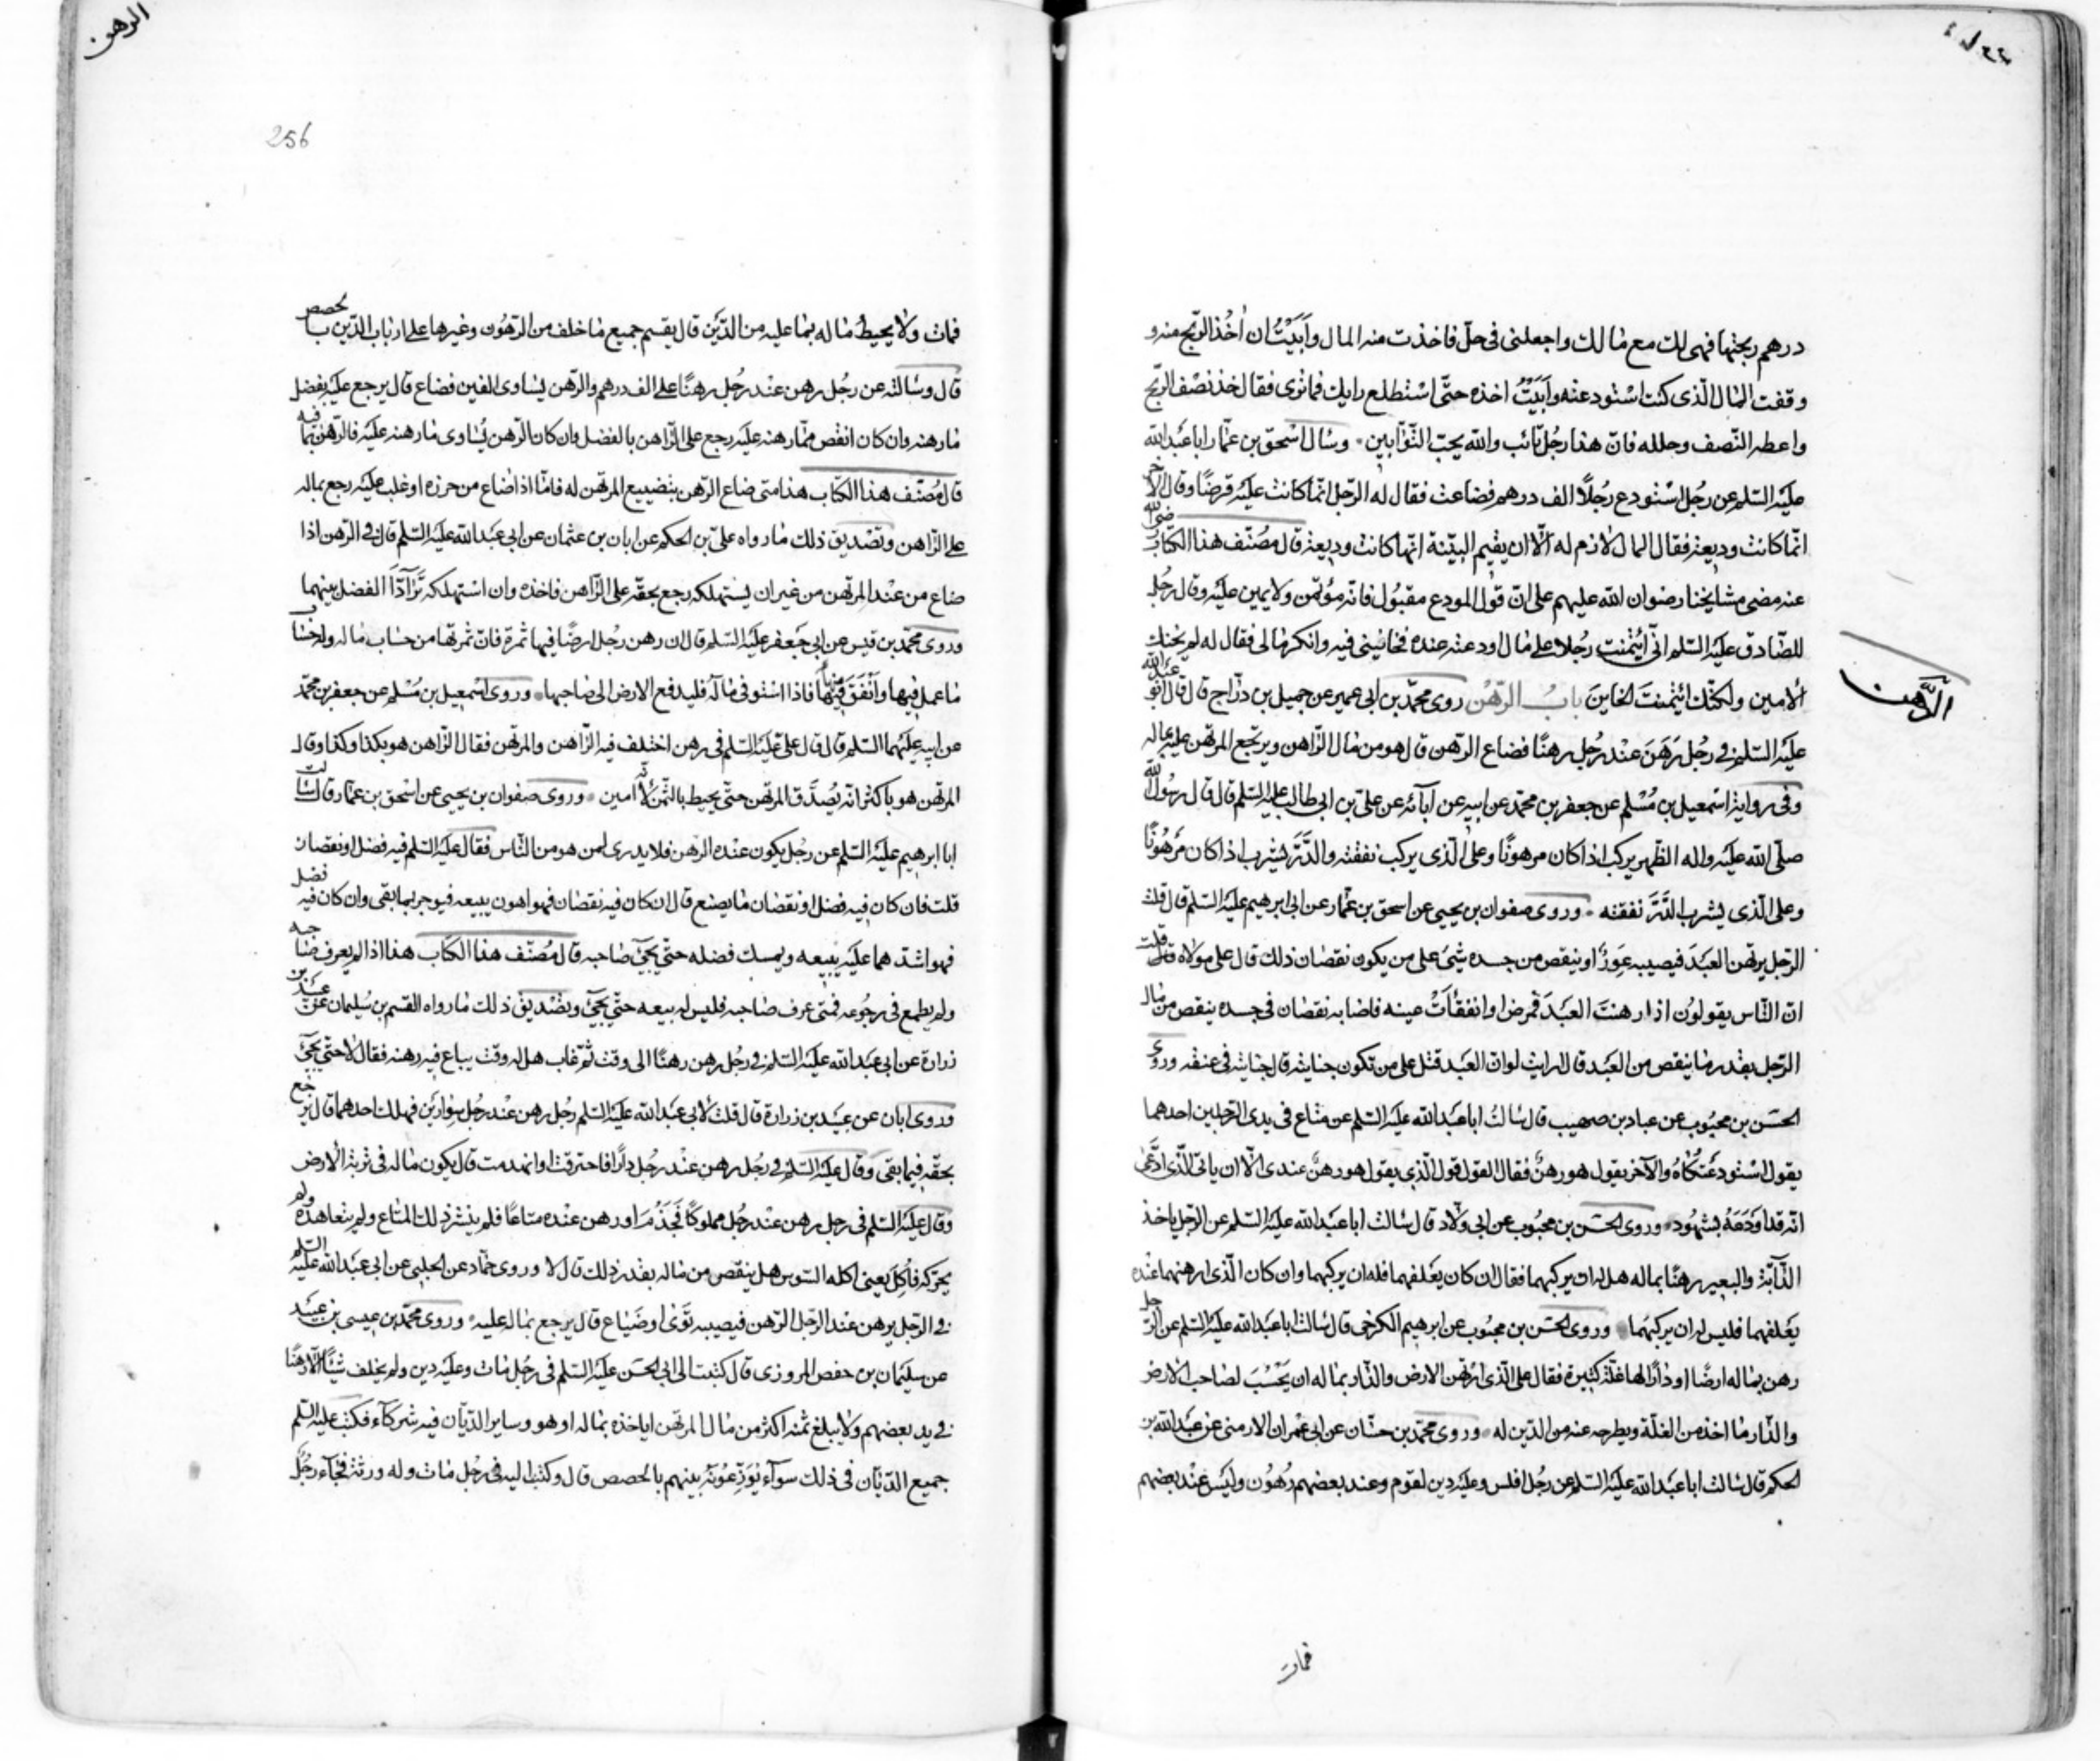 درهم ربحتها فهى لك مع مالك واجعلنى فى حلّ فاخذت منه المال وأَبَيْتُ ان اٰخُذ الربح منه و
وقفت المال الّذى كنت استودعته وأَبَيْتُ اخذه حتّى استطلع رايك فما ترى فقال خذ نصف الربح
واعطه النّصف وحلله فانّ هذا رجُل تائب والله يحبّ التّوّابين وسال اسحق بن عمّار ابا عَبد الله
عليه السّلم عن رجُل استودع رجُلاً الف درهم فضاعت فقال له الرّجل انّما كانت عليه قرضًا وقال الآخر
انّما كانت وديعة فقال المال لازم له الّا ان يقيم البيّنة انّها كانت وديعة قال مصنّف هذا الكتاب رضى الله
عنه مضى مشايخنا رضوان الله عليهم على انّ قول المودع مقبُول فانّه مؤتمن ولا يمين عليه وقال رجُل
للصّادق عليه السّلم انّى ائتمنت رجُلا على مال اودعته عنده فخاننى فيه وانكر مالى فقال له لم يخنك
الامين ولكنّك ائتمنت الخاين بابُ الرّهْن روى محمّد بن ابى عمير عن جميل بن درّاج قال قال ابو عبد الله
عليه السّلم فى رجُل رَهَنَ عنْد رجُل رهنًا فضاع الرّهن قال هو من مال الرّاهن ويرتجع المرتهن عليه بماله
وفى رواية اسمعيل بن مُسْلم عن جعفر بن محمّد عن ابيه عن آبائه عن علىّ بن ابى طالب عليه السّلم قال قال رسُول الله
صلّى الله عليه واله الظّهر يركب اذا كان مرهونًا وعلى الّذى يركب نفقته والدّرّ يشرب اذا كان مَرهُونًا
وعلى الّذى يشرب الدَّرَّ نفقته وروى صفوان بن يحيى عن اسحق بن عمّار عن ابى ابرهيم عليه السّلم قال قلت
الرّجل يرتهن العبَد فيصيبه عَوَرٌ او ينقص من جسده شىَء على من يكون نقصان ذلك قال على مولاه قلت
انّ النّاس يقولون اذا رهنتَ العبَدَ فمرض او انفقأتْ عينه فاصابه نقصان فى جسده ينقص من مال
الرّجل بقدر ما ينقص من العبَد قال ارايت لو انّ العبَد قتل على من تكون جنايته قال جنايته فى عنقه وروى
الحسَن بن محبُوب عن عباد بن صهيب قال سالتُ ابا عبَد الله عليه السّلم عن متاع فى يدى الرّجلين احدهما
يقول استودعتكاهُ والآخر يقول هو رهنٌ فقال القول قول الّذى يقول هو رهنٌ عندى الّا ان ياتى الّذى ادّعى
انّه قد اَوْدَعَهُ بشهُود وروى الحسَن بن محبُوب عن ابى ولّاد قال سالت ابا عبَد الله عليه السّلم عن الرّجل ياخذ
الدّآبّة والبعير رهنًا بماله هل له ان يركبهما فقال ان كان يعلفهما فله ان يركبهما وان كان الّذى ارهنهما عنده
يعَلفهما فليس له ان يركبهما وروى الحسَن بن محبُوب عن ابرهيم الكرخى قال سالت ابا عبَد الله عليه السّلم عن الرّجل
رهن بماله ارضًا او دارًا لها غلّة كثيرة فقال على الّذى ارتهن الارض والدّار بماله ان يَحْسُبَ لصاحب الارض
والدّار ما اخذه من الغلّة ويطرحه عنه من الدّين له وروى محمّد بن حسّان عن ابى عمْران الارمنى عن عبَد الله بن
الحكم قال سالت ابا عبَد الله عليه السّلم عن رجُل افلس وعليه دين لقوم وعند بعضهم رُهُون وليس عنْد بعضهم
فمات
الرّهن
الرهن
256
فمات ولا يحيط ماله بما عليه من الدّيْن قال يقسم جميع ما خلف من الرّهُون وغيرها على ارباب الدّين بالحصص
قال وسالته عن رجُل رهن عنْد رجُل رهنًا على الف درهم والرّهن يساوى الفين فضاع قال يرجع عليه بفضل
ما رهنه وان كان انقص ممّا رهنه عليه رجع على الرّاهن بالفضل وان كان الرّهن يُساوى ما رهنه عليه فالرّهن بما فيه
قال مُصنّف هذا الكتاب هذا متى ضاع الرّهن بتضييع المرتهن له فامّا اذا ضاع من حرزه او غلب عليه رجع بماله
على الرّاهن وتصْديق ذلك ما رواه علىّ بن الحكم عن ابان بن عثمان عن ابى عبَد الله عليه السّلم قال فى الرّهن اذا
ضاع من عنْد المرتهن من غير ان يستهلكه رجع بحقّه على الرّاهن فاخذه وان استهلكه تَرَآدّا الفضل بينهما
وروى محمّد بن قيس عن ابى جعفر عليه السّلم قال ان رهن رجُل ارضًا فيها ثمرة فانّ ثمرتها من حساب ماله وله حساب
ما عمل فيها وأنْفَقَ فيها فاذا استوفى مالَه فليدفع الارض الى صاحبها وروى اسمعيل بن مُسْلم عن جعفر بن محمّد
عن ابيه عليهما السّلم قال قال علىّ عليه السّلم فى رهن اختلف فيه الرّاهن والمرتهن فقال الرّاهن هو بكذا وكذا وقال
المرتهن هو باكثر انّه يُصدَّق المرتهن حتّى يحيط بالثمن لانّه امين وروى صفوان بن يحيى عن اسْحق بن عمّار قال سالت
ابا ابرهيم عليه السّلم عن رجُل يكون عنْده الرّهن فلا يدرى لمن هو من النّاس فقال عليه السّلم فيه فضل او نقصان
قلت فان كان فيه فضل او نقصان ما يصنع قال ان كان فيه نقصان فهو اهون يبيعه فيوجر بما بقى وان كان فيه فضل
فهو اشدّهما عليه يبيعه ويمسك فضله حتّى يجىَ صاحبه قال مُصنّف هذا الكتاب هذا اذا لم يعرف صاحبه
ولم يطمع فى رجُوعه فمتى عرف صاحبه فليس له بيعه حتّى يجىَ وتصْديق ذلك ما رواه القسم بن سُليمان عن عبيد بن
زرارة عن ابى عبَد الله عليه السّلم فى رجُل رهن رهنًا الى وقت ثمّ غاب هل له وقت يباع فيه رهنه فقال لا حتّى يجىَ
وروى ابان عن عبيَد بن زرارة قال قلت لابى عبَد الله عليه السّلم رجُل رهن عنْد رجُل سوارَين فهلك احدهما قال يرجع
بحقّه فيما بقى وقال عليه السّلم فى رجُل رهن عنْد رجُل دارًا فاحترقت او انهدمت قال يكون ماله فى تربة الارض
وقال عليه السّلم فى رجل رهن عنْد رجُل مملوكًا فَجَذُمَ او رهن عنده متاعًا فلم ينشر ذلك المتاع ولم يتعاهده ولم
يحرّكه فأُكِلَ يعنى اكله السّوس هل ينقص من ماله بقدر ذلك قال لا وروى حمّاد عن الحلبى عن ابى عبَد الله عليه السّلم
فى الرّجل يرهن عند الرّجل الرّهن فيصيبه تَوًى او ضَيَاع قال يرجع بماله عليه وروى محمّد بن عيسى بن عبيد
عن سليمان بن حفص المروزى قال كتبت الى ابى الحسَن عليه السّلم فى رجُل مات وعليه دين ولم يخلف شيئًا الّا رهنًا
فى يد بعضهم ولا يبلغ ثمنه اكثر من مال المرتهن اياخذه بماله او هو وساير الدّيّان فيه شركآء فكتب عليه السّلم
جميع الدّيّان فى ذلك سوآء يُوَزّعُونَه بينهم بالحصص قال وكتبت اليه فى رجُل مات وله ورثة فجآء رجُل